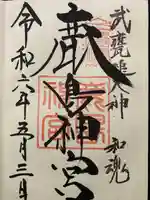 武甕槌大神 和魂
鹿島神宮
令和六年五月三日